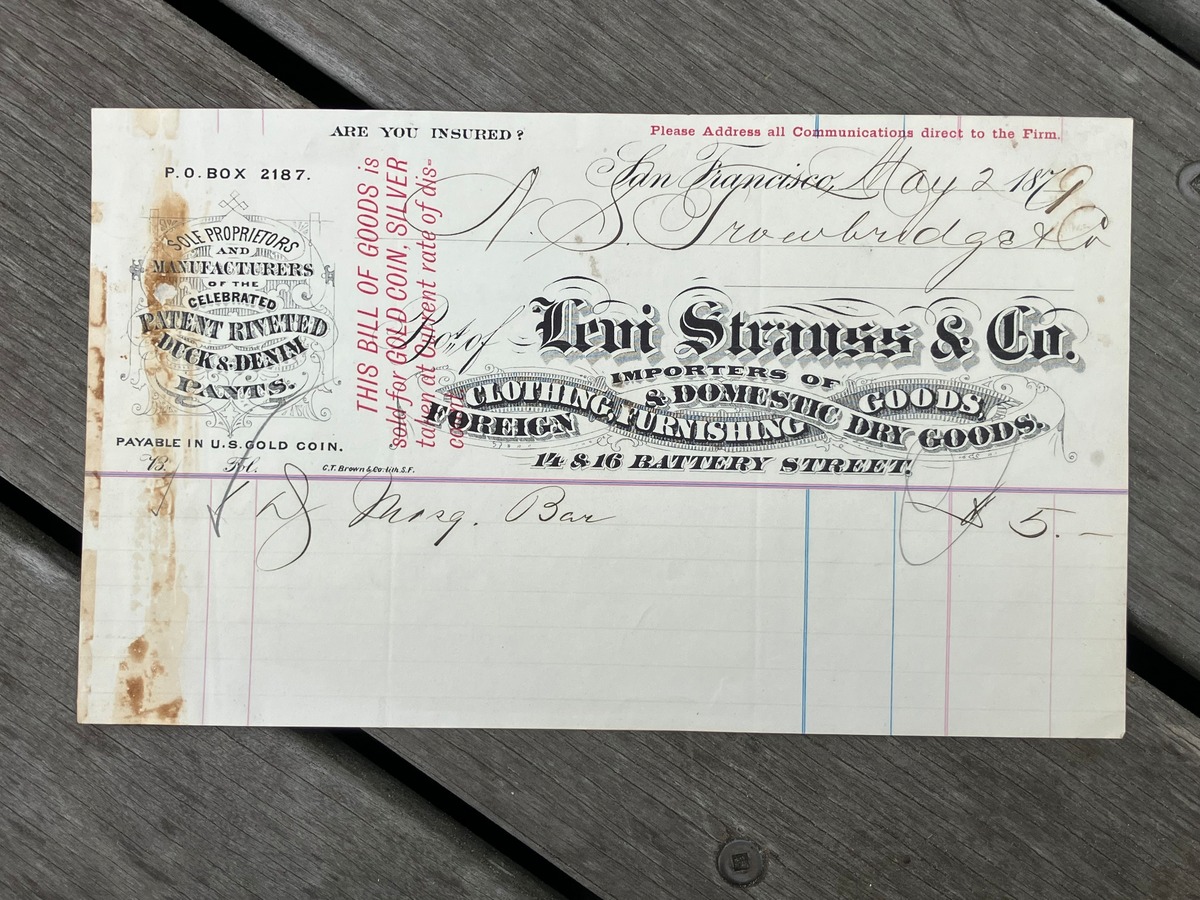 ARE YOU INSURED?
Please Address all Communications direct to the Firm.
P.O. BOX 2187.
San Francisco, May 2 1879
N. S. Trowbridge & Co
SOLE PROPRIETORS
AND
MANUFACTURERS
OF THE
CELEBRATED
PATENT RIVETED
DUCK & DENIM
PANTS.
PAYABLE IN U.S. GOLD COIN.
THIS BILL OF GOODS is
sold for GOLD COIN, SILVER
taken at current rate of dis-
Bot of Levi Strauss & Co.
IMPORTERS OF
CLOTHING, & DOMESTIC GOODS,
FOREIGN FURNISHING DRY GOODS.
14 & 16 BATTERY STREET.
B. Fol.
C.T. Brown & Co. lith. S.F.
Mosq. Bar $ 5.–